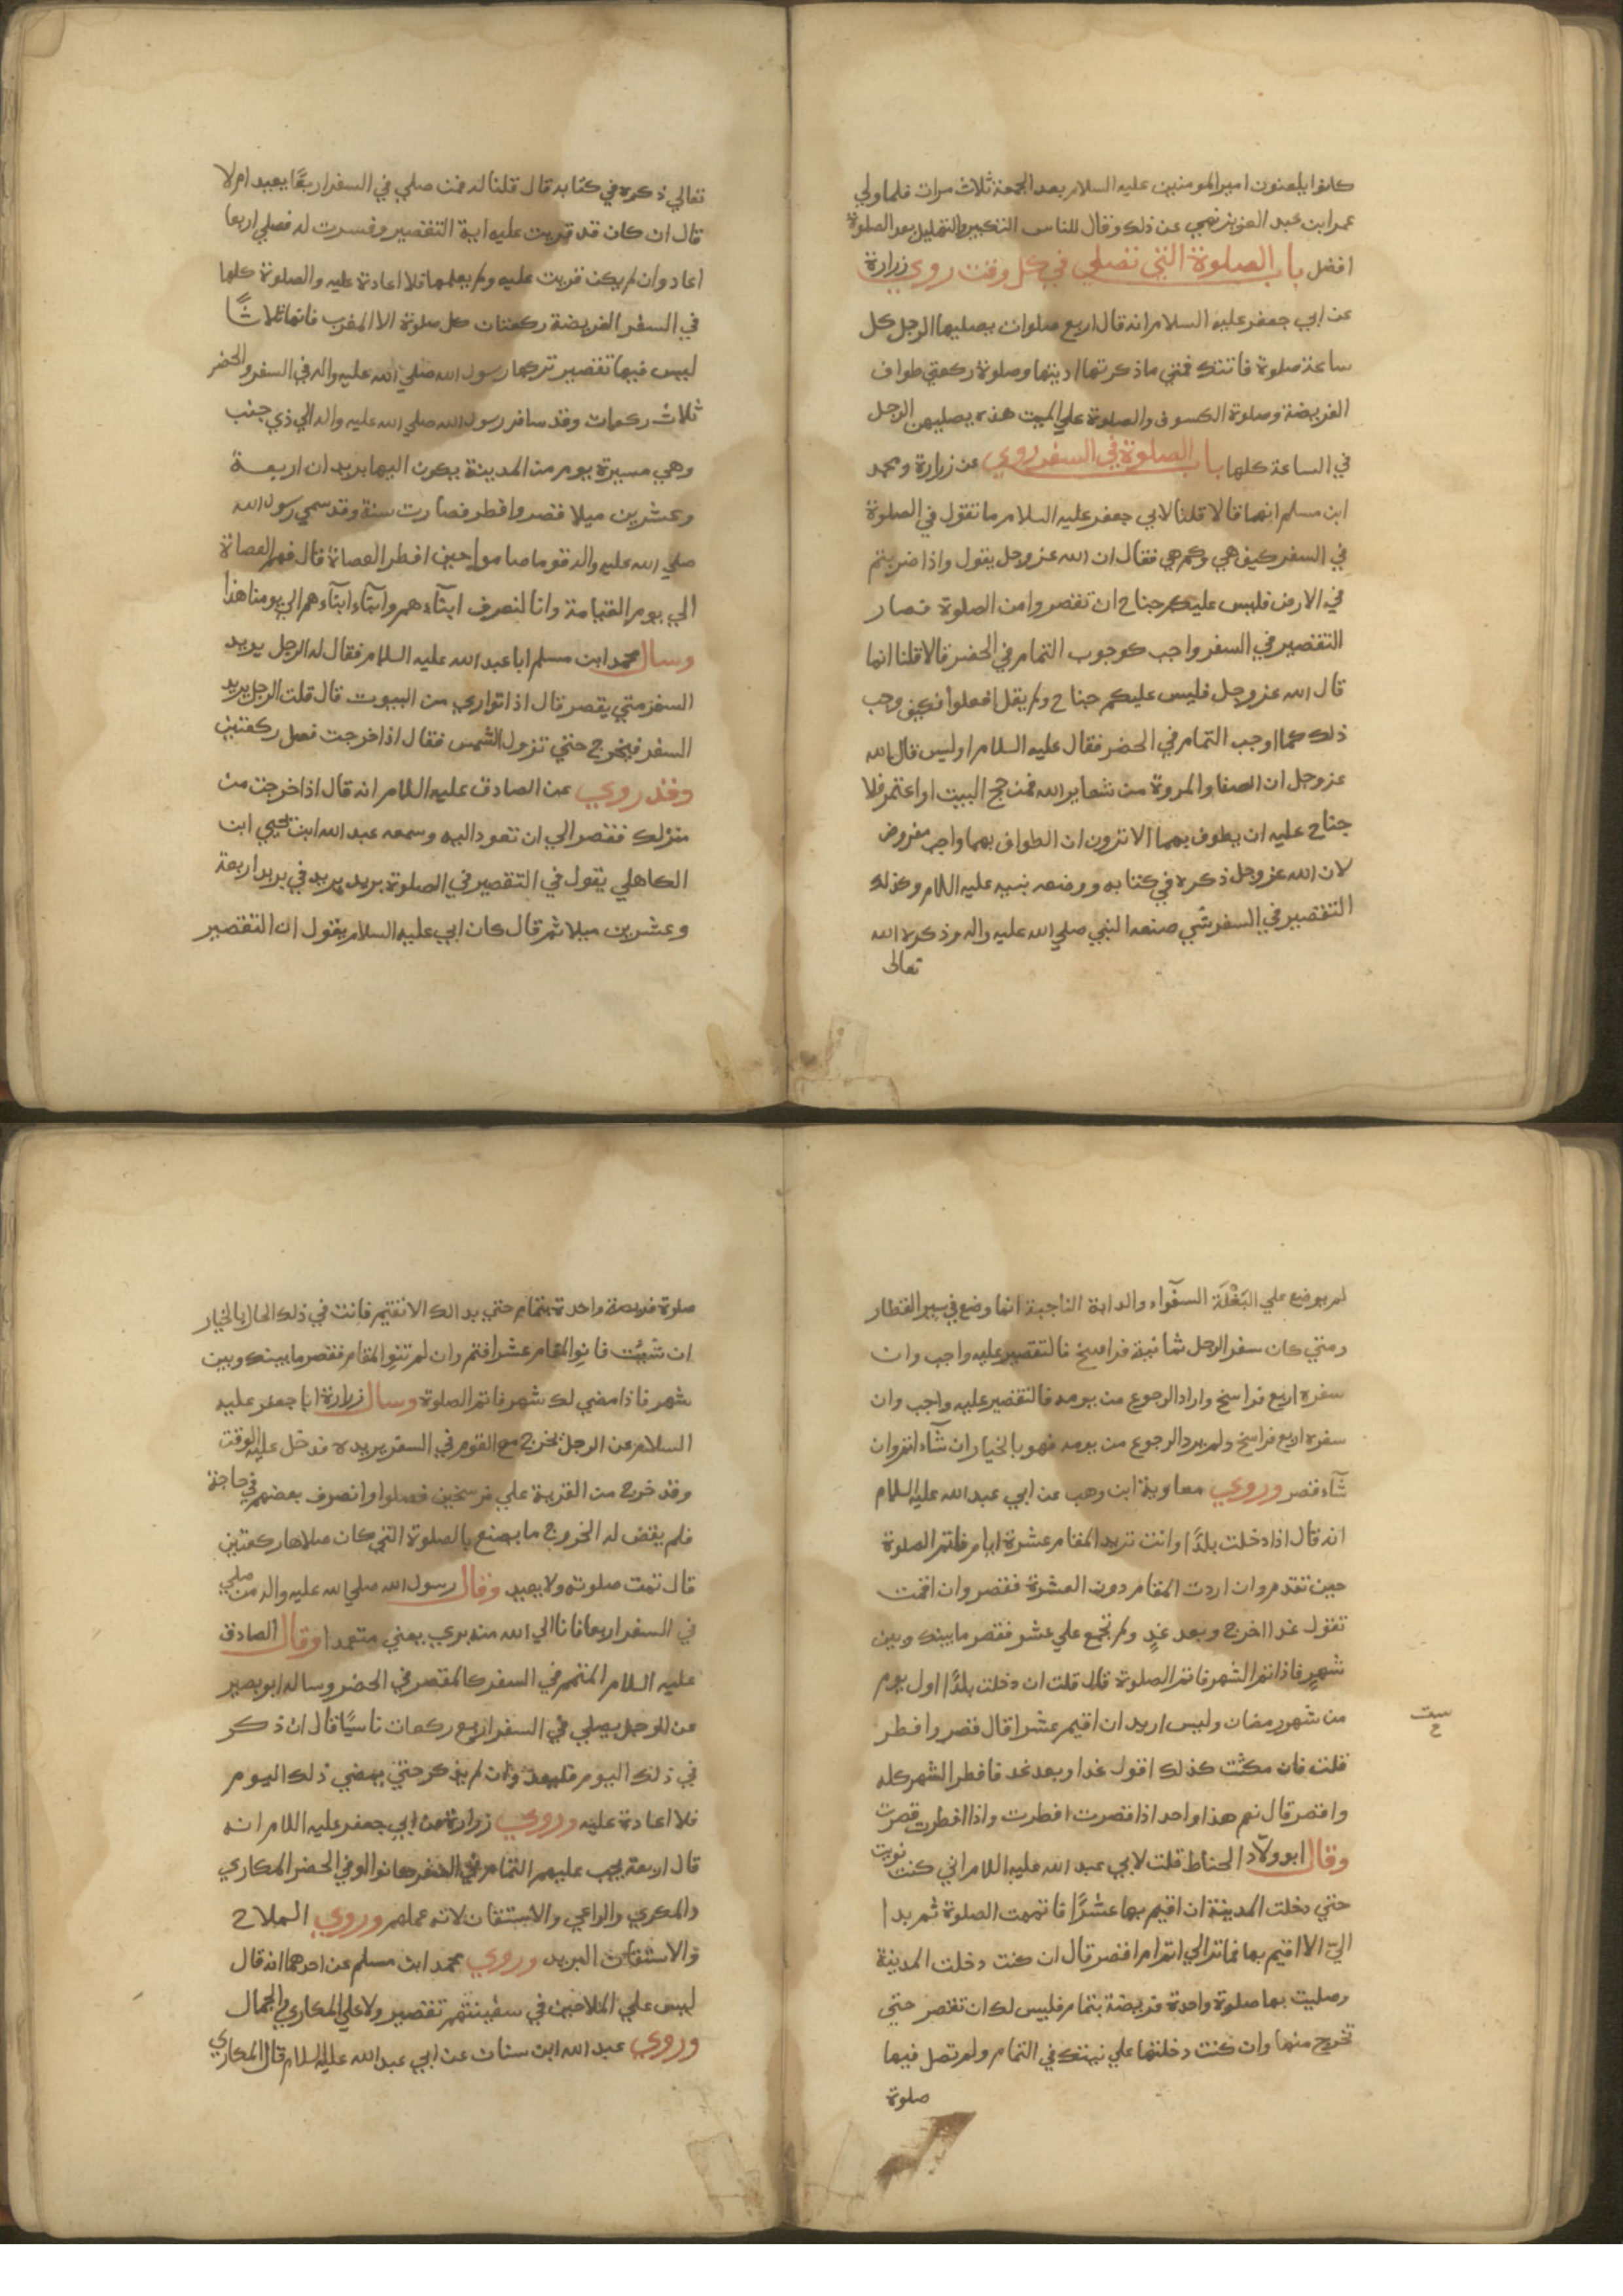 كانوا يلعنون امير المومنين عليه السلام بعد الجمعة ثلاث مرات فلما ولي
عمر ابن عبد العزيز نهي عن ذلك وقال للناس التكبير والتهليل بعد الصلوة
افضل باب الصلوة التي تصلي في كل وقت روي زرارة
عن ابي جعفر عليه السلام انه قال اربع صلوات يصليها الرجل كل
ساعة صلوة فاتتك فمتي ما ذكرتها اديتها وصلوة ركعتي طواف
الفريضة وصلوة الكسوف والصلوة علي الميت هذه يصليهن الرجل
في الساعة كلها باب الصلوة في السفر روي عن زرارة ومحمد
ابن مسلم انهما قالا قلنا لابي جعفر عليه السلام ما تقول في الصلوة
في السفر كيف هي وكم هي فقال ان الله عز وجل يقول واذا ضربتم
في الارض فليس عليكم جناح ان تقصروا من الصلوة فصار
التقصير في السفر واجب كوجوب التمام في الحضر قالا قلنا انما
قال الله عز وجل فليس عليكم جناح ولم يقل افعلوا فكيف وجب
ذلك كما اوجب التمام في الحضر فقال عليه السلام اوليس قال الله
عز وجل ان الصفا والمروة من شعاير الله فمن حج البيت او اعتمر فلا
جناح عليه ان يطوف بهما الا ترون ان الطواف بهما واجب مفروض
لان الله عز وجل ذكره في كتابه ووضعه نبيه عليه اللام وكذلك
التقصير في السفر شي صنعه النبي صلي الله عليه واله وذكره الله
تعالى
تعالي ذكره في كتابه قال قلنا له فمن صلي في السفر اربعًا يعيد ام لا
قال ان كان قد قريت عليه اية التقصير وفسرت له فصلي اربعا
اعاد وان لم يكن قريت عليه ولم يعلمها فلا اعادة عليه والصلوة كلها
في السفر الفريضة ركعتان كل صلوة الا المغرب فانها ثلاثًا
ليس فيها تقصير تركها رسول الله صلي الله عليه واله في السفر والحضر
ثلاث ركعات وقد سافر رسول الله صلي الله عليه واله الي ذي جنب
وهي مسيرة يوم من المدينة يكون اليها بريدان اربعة
وعشرين ميلا فقصر وافطر فصارت سنة وقد سمي رسول الله
صلي الله عليه واله قوما صاموا حين افطر العصاة قال فهم العصاة
الي يوم القيامة وانا لنعرف ابنآءهم وابنآء ابنآءهم الي يومنا هذا
وسال محمد ابن مسلم ابا عبد الله عليه السلام فقال له الرجل يريد
السفر متي يقصر قال اذا تواري من البيوت قال قلت الرجل يريد
السفر فيخرج حتي تزول الشمس فقال اذا خرجت فصل ركعتين
وقد روي عن الصادق عليه اللام انه قال اذا خرجت من
منزلك فقصر الي ان تعود اليه وسمعه عبد الله ابن يحيي ابن
الكاهلي يقول في التقصير في الصلوة بريد بريد في بريد اربعة
وعشرين ميلا ثم قال كان ابي عليه السلام يقول ان التقصير
لم يوضع علي البَغْلَة السفوآء والدابة الناجية انما وضع في سير القطار
ومتي كان سفر الرجل ثمانية فراسخ فالتقصير عليه واجب وان
سفره اربع فراسخ واراد الرجوع من يومه فالتقصير عليه واجب وان
سفره اربع فراسخ ولم يرد الرجوع من يومه فهو بالخيار ان شآء اتم وان
شآء قصر وروي معاوية ابن وهب عن ابي عبد الله عليه السلام
انه قال اذا دخلت بلدًا وانت تريد المقام عشرة ايام فاتم الصلوة
حين تقدم وان اردت المقام دون العشرة فقصر وان اقمت
تقول غدا اخرج وبعد غدٍ ولم تجمع علي عشر فقصر ما بينك وبين
شهرٍ فاذا تم الشهر فاتم الصلوة قال قلت ان دخلت بلدًا اول يوم
من شهر رمضان وليس اريد ان اقيم عشرا قال قصر وافطر
قلت فان مكثت كذلك اقول غدا وبعد غد فافطر الشهر كله
واقصر قال نعم هذا واحد اذا قصرت افطرت واذا افطرت قصرت
وقال ابو ولّاد الحناط قلت لابي عبد الله عليه اللام اني كنت نويت
حتي دخلت المدينة ان اقيم بها عشرًا فاتممت الصلوة ثم بدا
اليّ الا اقيم بها فما تر الي اتم ام اقصر قال ان كنت دخلت المدينة
وصليت بها صلوة واحدة فريضة بتمام فليس لك ان تقصر حتي
تخرج منها وان كنت دخلتها علي نيتك في التمام ولم تصل فيها
صلوة
صلوة فريضة واحدة بتمام حتي بدا لك الا تقيم فانت في ذلك الحال بالخيار
ان شئت فانو المقام عشرا فتم وان لم تنو المقام فقصر ما بينك وبين
شهر فاذا مضي لك شهر فاتم الصلوة وسال زرارة ابا جعفر عليه
السلام عن الرجل يخرج مع القوم في السفر يريده فدخل عليه الوقت
وقد خرج من القرية علي فرسخين فصلوا وانصرف بعضهم في حاجة
فلم يقض له الخروج ما يصنع بالصلوة التي كان صلاها ركعتين
قال تمت صلوته ولا يعيد وقال رسول الله صلي الله عليه واله من صلي
في السفر اربعا فانا الي الله منه بري يعني متعمدا وقال الصادق
عليه السلام المتمم في السفر كالمقصر في الحضر وساله ابو بصير
عن الرجل يصلي في السفر اربع ركعات ناسيًا قال ان ذكر
في ذلك اليوم فليعد وان لم يذكر حتي يمضي ذلك اليوم
فلا اعادة عليه وروي زرارة عن ابي جعفر عليه اللام انه
قال اربعة يجب عليهم التمام في السفر كانوا او في الحضر المكاري
والمكري والراعي والاشتقان لانه عملهم وروي الملاح
والاشتقان البريد وروي محمد ابن مسلم عن احدهما انه قال
ليس علي الملاحين في سفينتهم تقصير ولا علي المكاري والجمال
وروي عبد الله ابن سنان عن ابي عبد الله عليه السلام قال المكاري